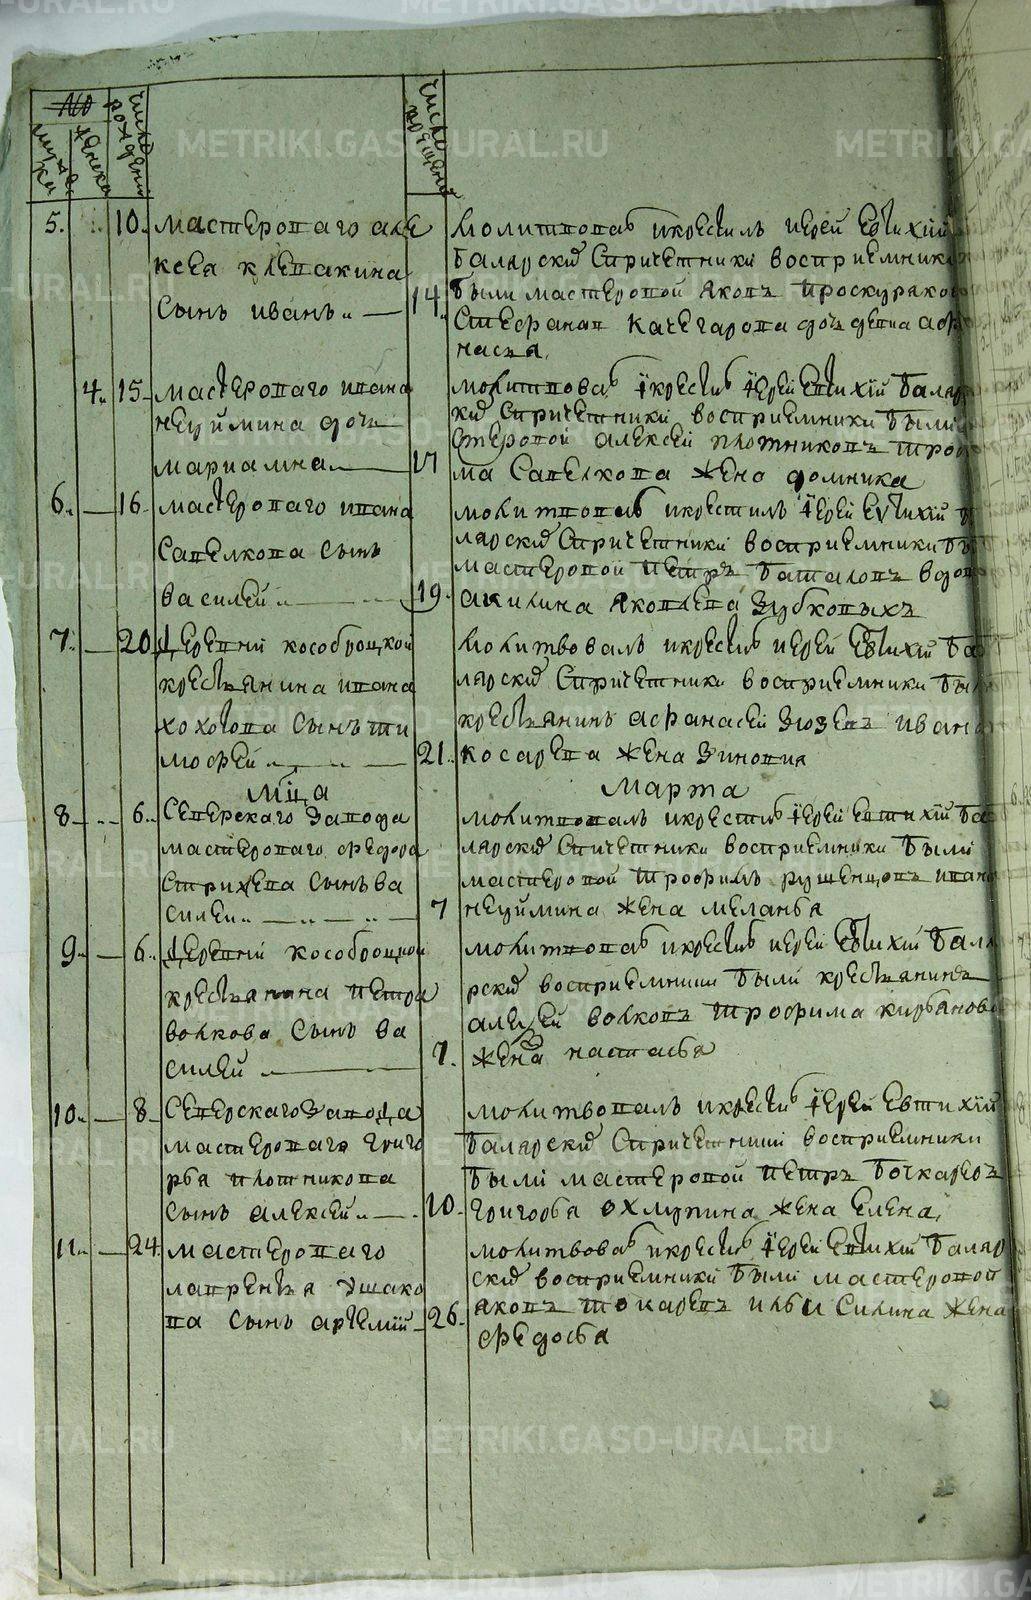 №
мужска
женска
число рожденiй
число крещенiй
5. 10. мастероваго але
ксея клепакина
сынъ иванъ
14.
молитвовалъ и крестилъ иерей Евтихiй
Балярскiй спричетники восприемники
были мастеровой яковъ проскуряковъ
Стефана Качегарова дочь девка афа
насья.
4. 15. мастероваго ивана
неуймина дочь
мариамна
17
молитвовалъ i крестилъ iерей Евтихiй Баляр
скiй спричетники восприемники были ма
стеровой алексей плотниковъ трофи
ма Сапелкова жена домника
6. 16. мастероваго ивана
Сапелкова сынъ
василей
19.
молитвовалъ и крестилъ iерей Евтихiй Ба
лярскiй спричетники восприемники бы
мастеровой петръ Баталовъ вдов
акилина яковлева Зубковыхъ
7. 20. Деревнi кособроцкой
крестьянина ивана
хохлова сынъ ти
мофей
21.
молитвовалъ и крестилъ иерей Евтихiй Ба
лярскiй спричетники восприемники бы
крестьянинъ афанасей Зюзевъ ивана
косарева жена Зиновия
мца марта
8 6. Северскаго Завода
мастероваго федора
стрижева сынъ ва
силеи
7
молитвовалъ и крестилъ iерей Евтихiй Ба
лярскiй спичетники восприемники были
мастеровой трофимъ рушенцовъ ивана
неуймина жена меланья
9. 6. Деревнi кособроцкой
крестьянина петра
волкова сынъ ва
силей
7.
молитвовалъ и крестилъ иерей Евтихiй Баля
рскiй восприемники были крестьянинъ
алексей волковъ трофима кирьянова
жена настасья
10. 8 Северскаго Завода
мастероваго григо
рья плотникова
сынъ алексей
10.
молитвовалъ и крестилъ iерей Евтихiй
Балярскiй спричетники восприемники
были мастеровой петръ Бочкаревъ
григорья охлупина жена елена.
11. 24. мастероваго
лаврентья ушако
ва сынъ артемiй
26.
молитвовалъ и крестилъ iерей Евтихiй Баляр
скiй восприемники были мастеровой
яковъ токаревъ ильи силина жена
федосья
METRIKI.GASO-URAL.RU